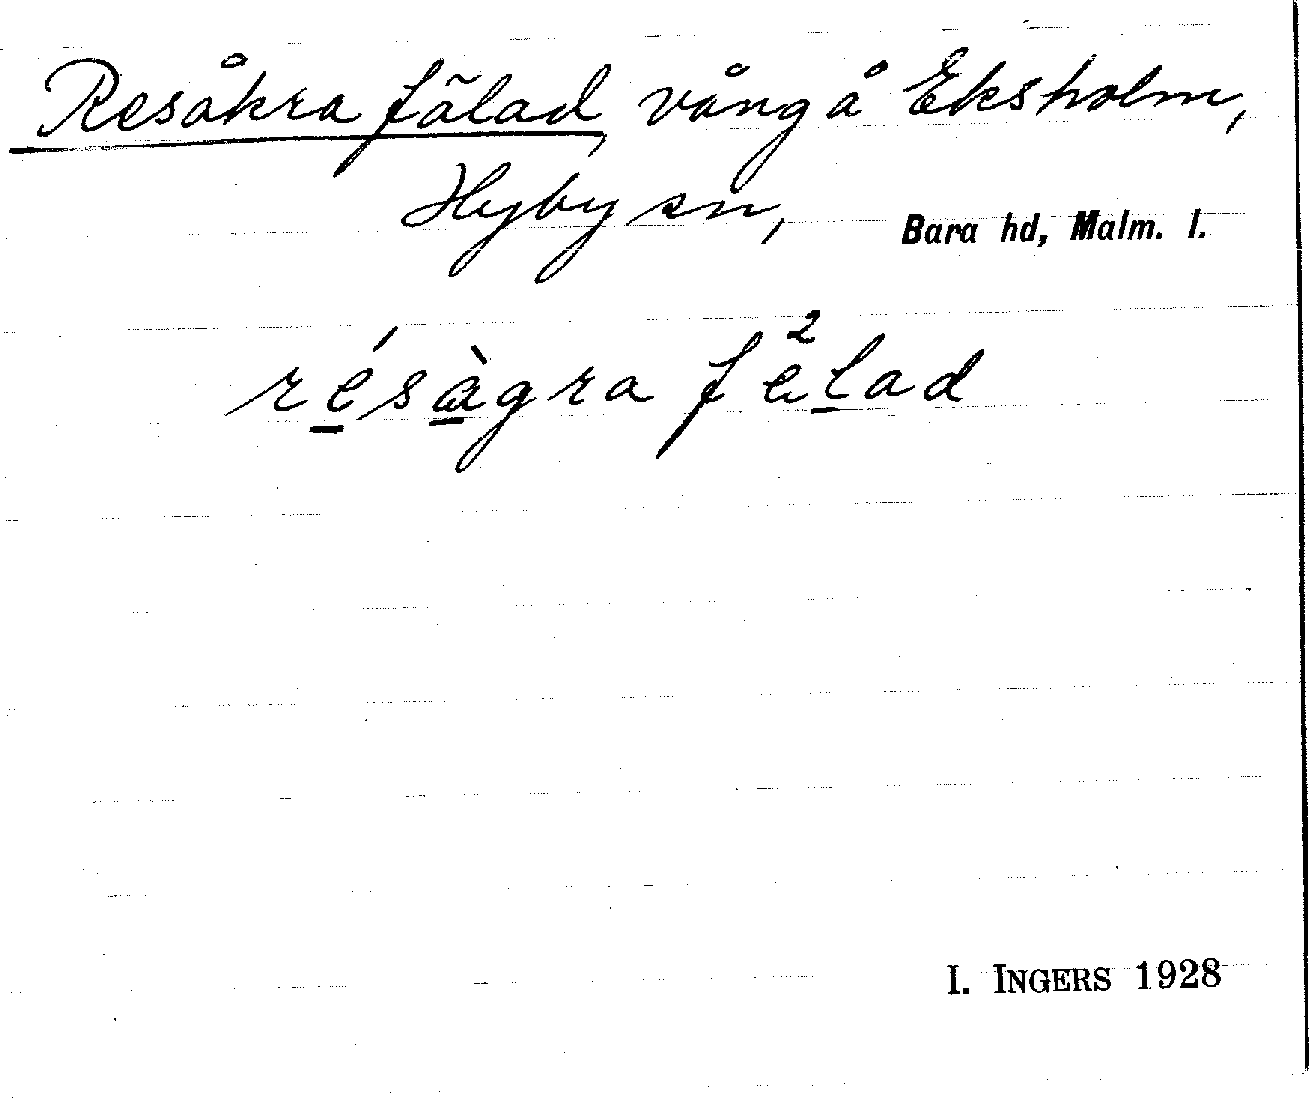 Resåkra fälad, vång å Eksholm,
Hyby sn, Bara hd, Malm. l.
résàgra fe²lad
I. INGERS 1928